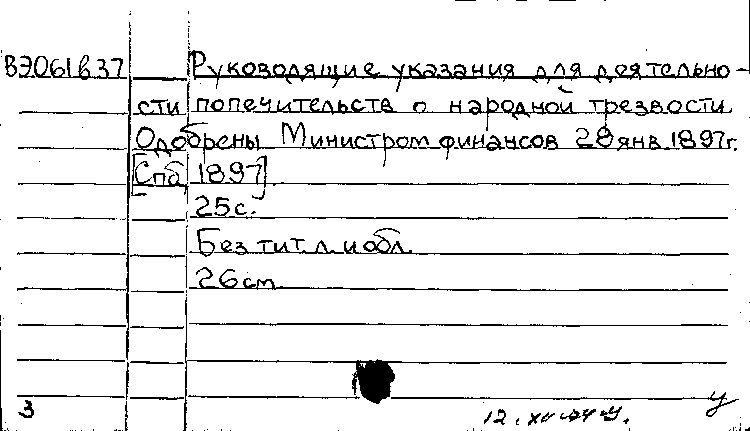 ВЭ061в37 Руководящие указания для деятельно-
сти попечительств о народной трезвости
Одобрены Министром финансов 28 янв. 1897г.
[Спб 1897]
25с.
Без тит. л. и обл.
26 см
3
12.
У